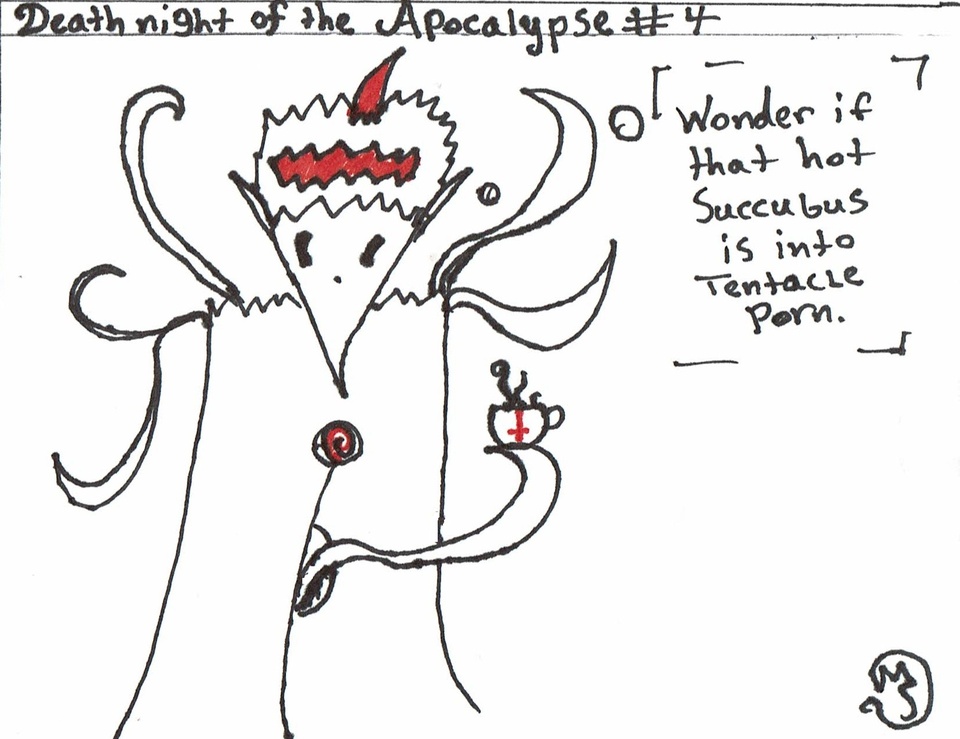 Deathnight of the Apocalypse #4
Wonder if
that hot
Succubus
is into
Tentacle
Porn.